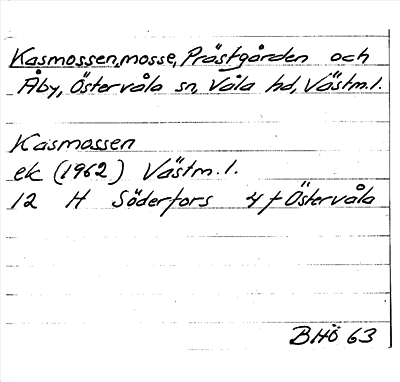 Kasmossen, mosse, Prästgården och
Åby, Östervåla sn, Våla hd, Västm.l.
Kasmossen
ek (1962) Västm.l.
12 H Söderfors 4 f Östervåla
BHÖ 63